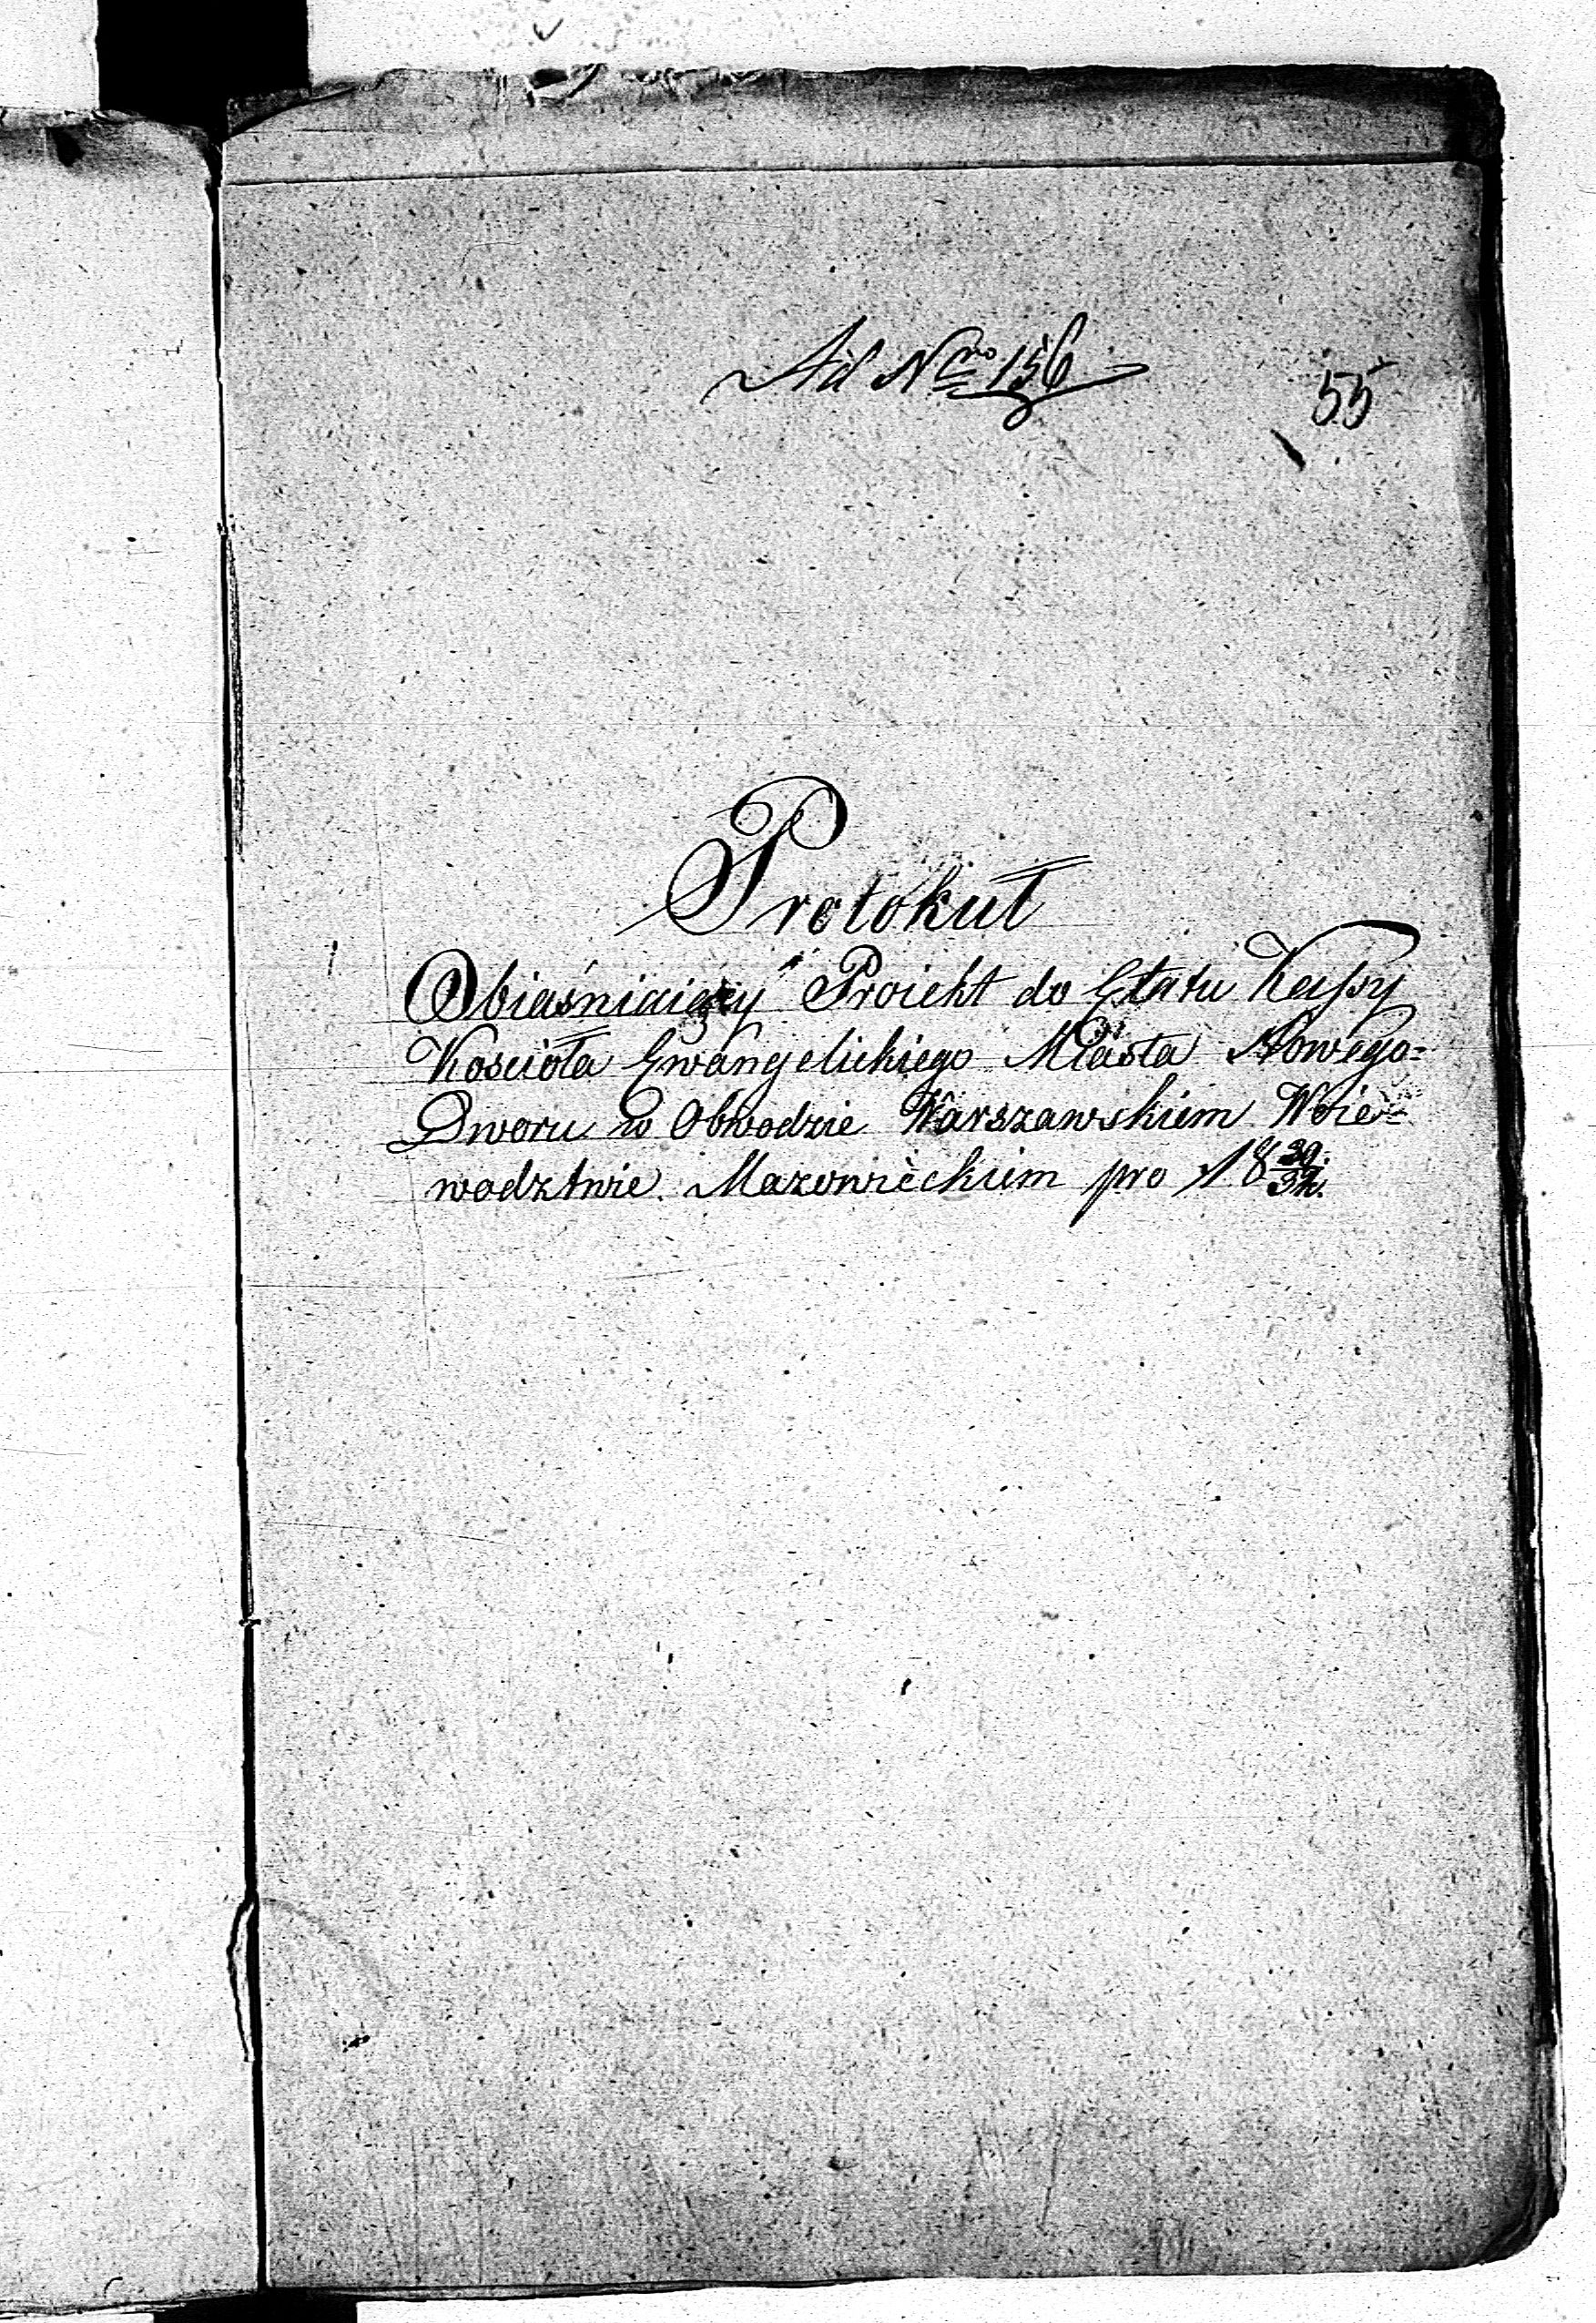 Ad Nro 156
55
Protokuł
Obiaśniaiący Proiekt do Etatu Kassy
Kościoła Ewangelickiego Miasta Nowego=
Dworu w Obwodzie Warszawskiem Woie=
wodztwie Mazowieckiem pro